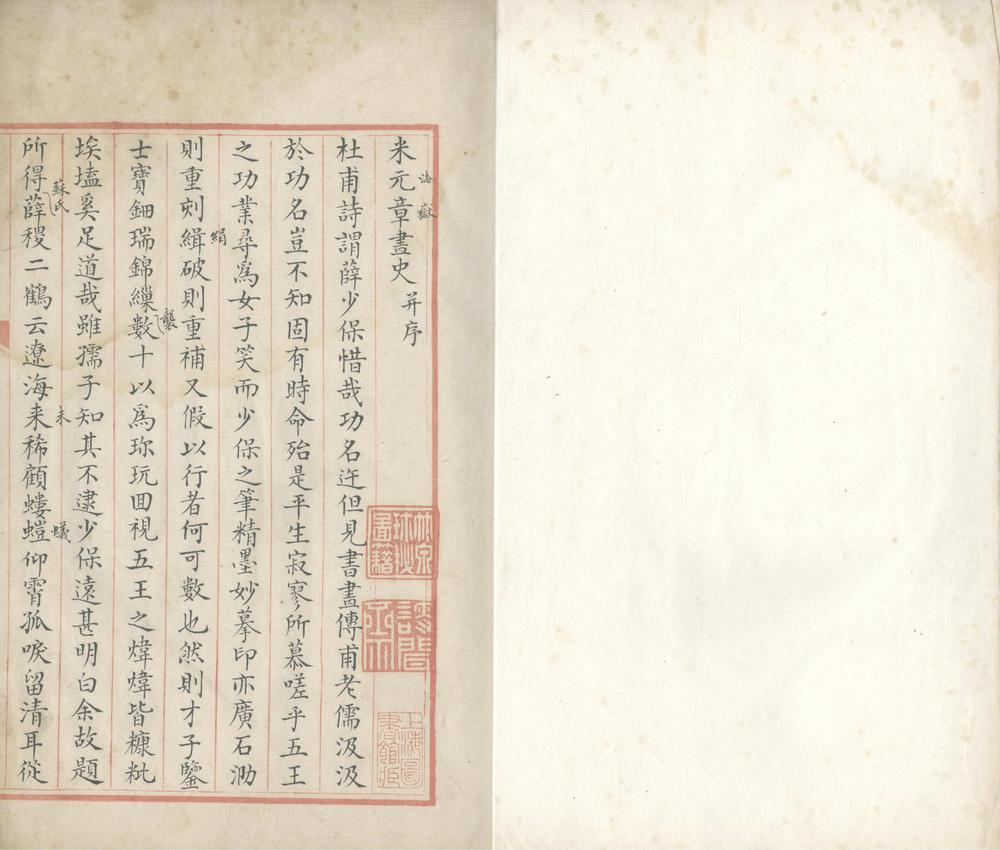 米元章畫史 并序
海嶽
杜甫詩謂薛少保惜哉功名迕但見書畫傳甫老儒汲汲
於功名豈不知固有時命殆是平生寂寥所慕嗟乎五王
之功業尋為女子笑而少保之筆精墨妙摹印亦廣石泐
則重刻緝破則重補又假以行者何可數也然則才子鑒
絹
士寶鈿瑞錦繅數十以為珎玩回視五王之煒煒皆糠粃
襲
埃壒奚足道哉雖孺子知其不逮少保遠甚明白余故題
所得薛稷二鶴云遼海来稀顧螻螘仰霄孤唳留清耳從
蘇氏
未
蟻
圖籍
上海圖書館臧